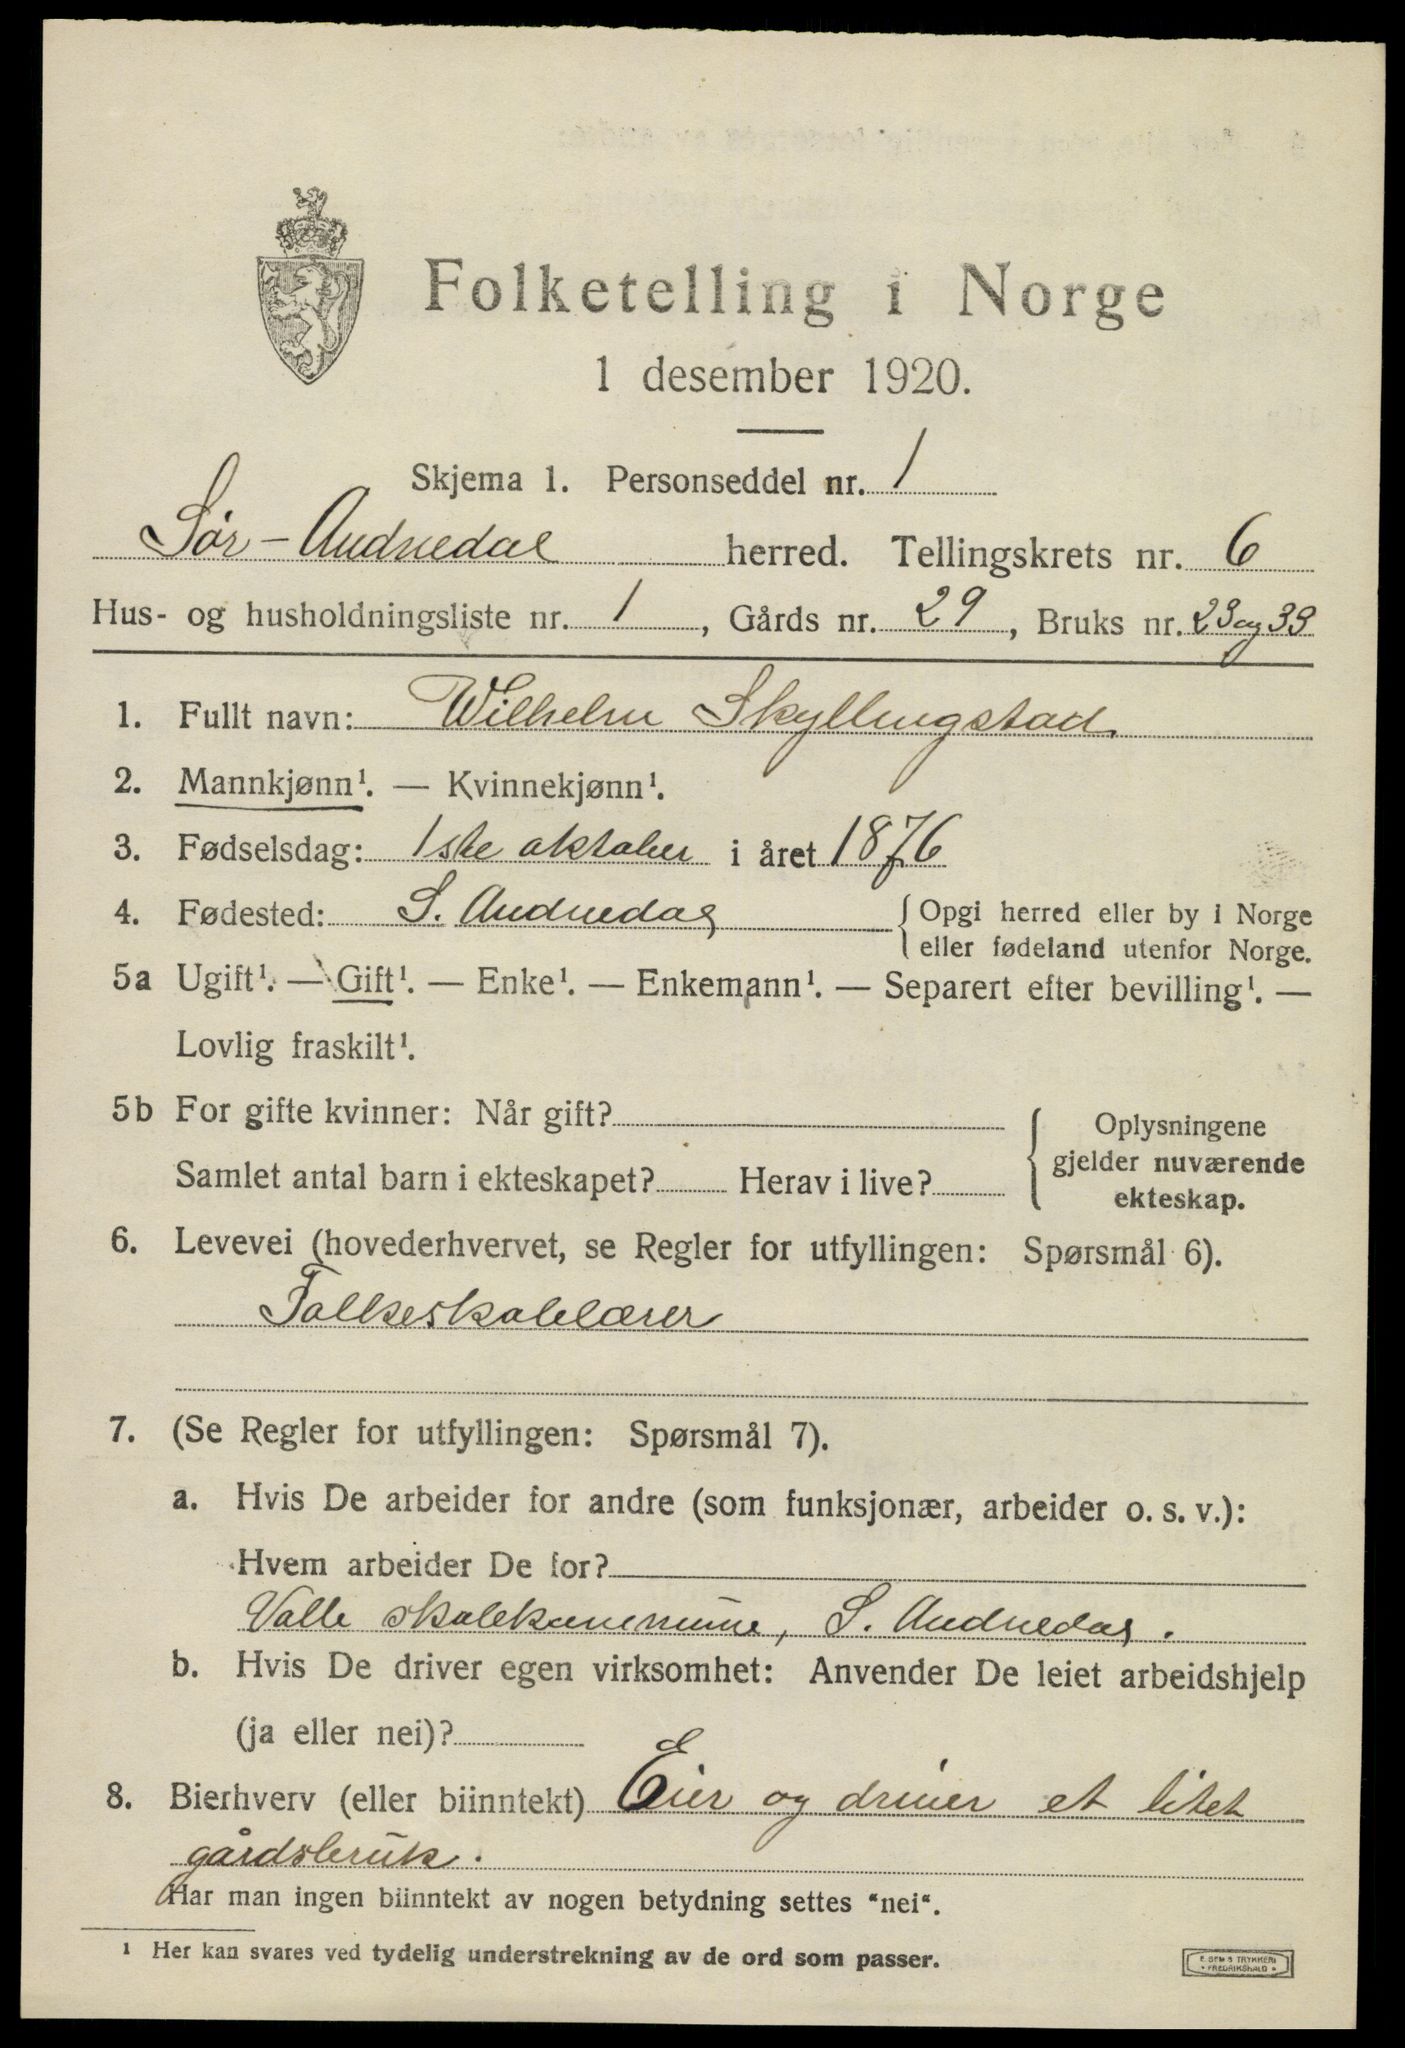 Folketelling i Norge
1 desember 1920.
Skjema 1. Personseddel nr. 1
Sør-Audnedal herred. Tellingskrets nr. 6
Hus- og husholdningsliste nr. 1, Gårds nr. 29, Bruks nr. 23 og 33
1. Fullt navn: Wilhelm Skyllingstad.
2. Mannkjønn¹. — Kvinnekjønn¹.
3. Fødselsdag: 1ste oktober i året 1876
4. Fødested: S. Audnedal {Opgi herred eller by i Norge
eller fødeland utenfor Norge.
5a Ugift¹. — Gift¹. — Enke¹. — Enkemann¹. — Separert efter bevilling¹. —
Lovlig fraskilt¹.
5b For gifte kvinner: Når gift?
Samlet antal barn i ekteskapet? Herav i live?
{Oplysningene
gjelder nuværende
ekteskap.
6. Levevei (hovederhvervet, se Regler for utfyllingen: Spørsmål 6).
Folkeskolelærer
7. (Se Regler for utfyllingen: Spørsmål 7).
a. Hvis De arbeider for andre (som funksjonær, arbeider o. s. v.):
Hvem arbeider De for?
Valle skolekommune, S. Audnedal.
b. Hvis De driver egen virksomhet: Anvender De leiet arbeidshjelp
(ja eller nei)?
8. Bierhverv (eller biinntekt) Eier og driver et litet
gårdsbruk.
Har man ingen biinntekt av nogen betydning settes “nei“.
¹ Her kan svares ved tydelig understrekning av de ord som passer.
E. SEM'S TRYKKERI
FREDRIKSHALD